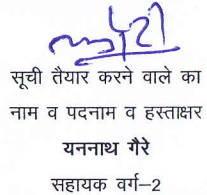 सूची तैयार करने वाले का
नाम व पदनाम व हस्ताक्षर
यननाथ गैरे
सहायक वर्ग–2